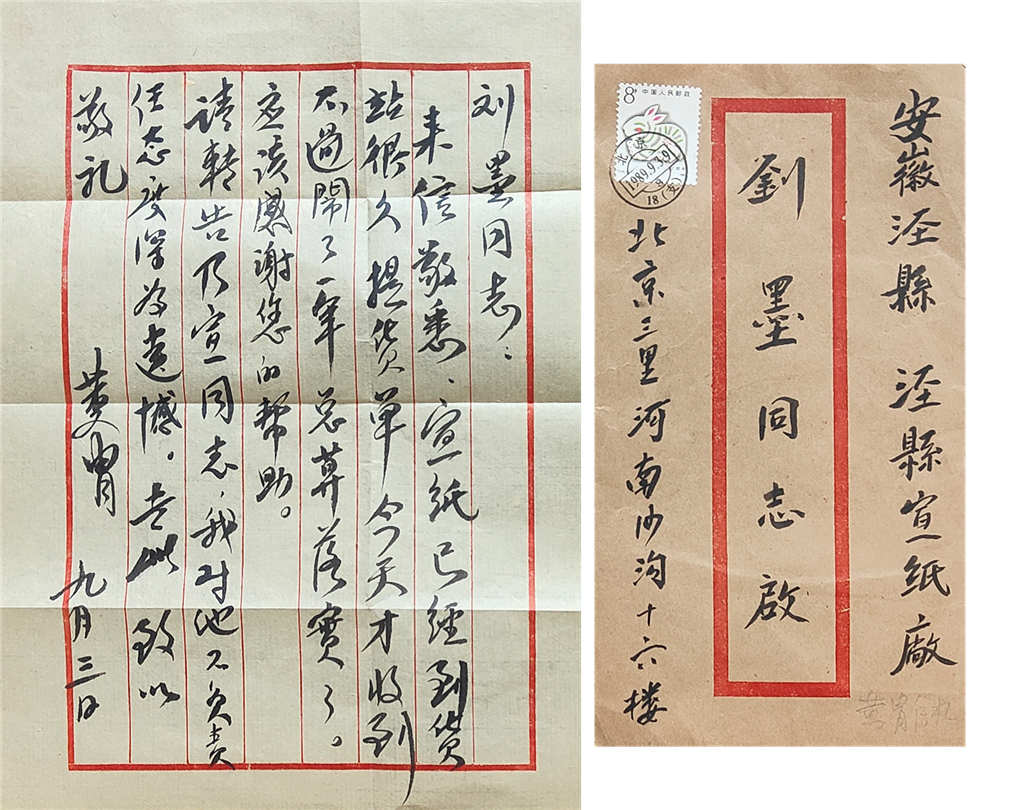 刘墨同志：
来信敬悉、宣纸已经到货
站很久提货单今天才收到
不過閙了一年总算落實了。
应该感谢您的帮助。
请轉告乃宣同志，我对他不负责
任态度深为遗憾。专此 致以
敬礼
黄胄 九月三日
安徽泾縣 泾縣宣纸廠
劉墨同志啟
北京三里河南沙沟十六楼
8分 中国人民邮政
北京
1989.9.3.9
18(支)
黄胄信札